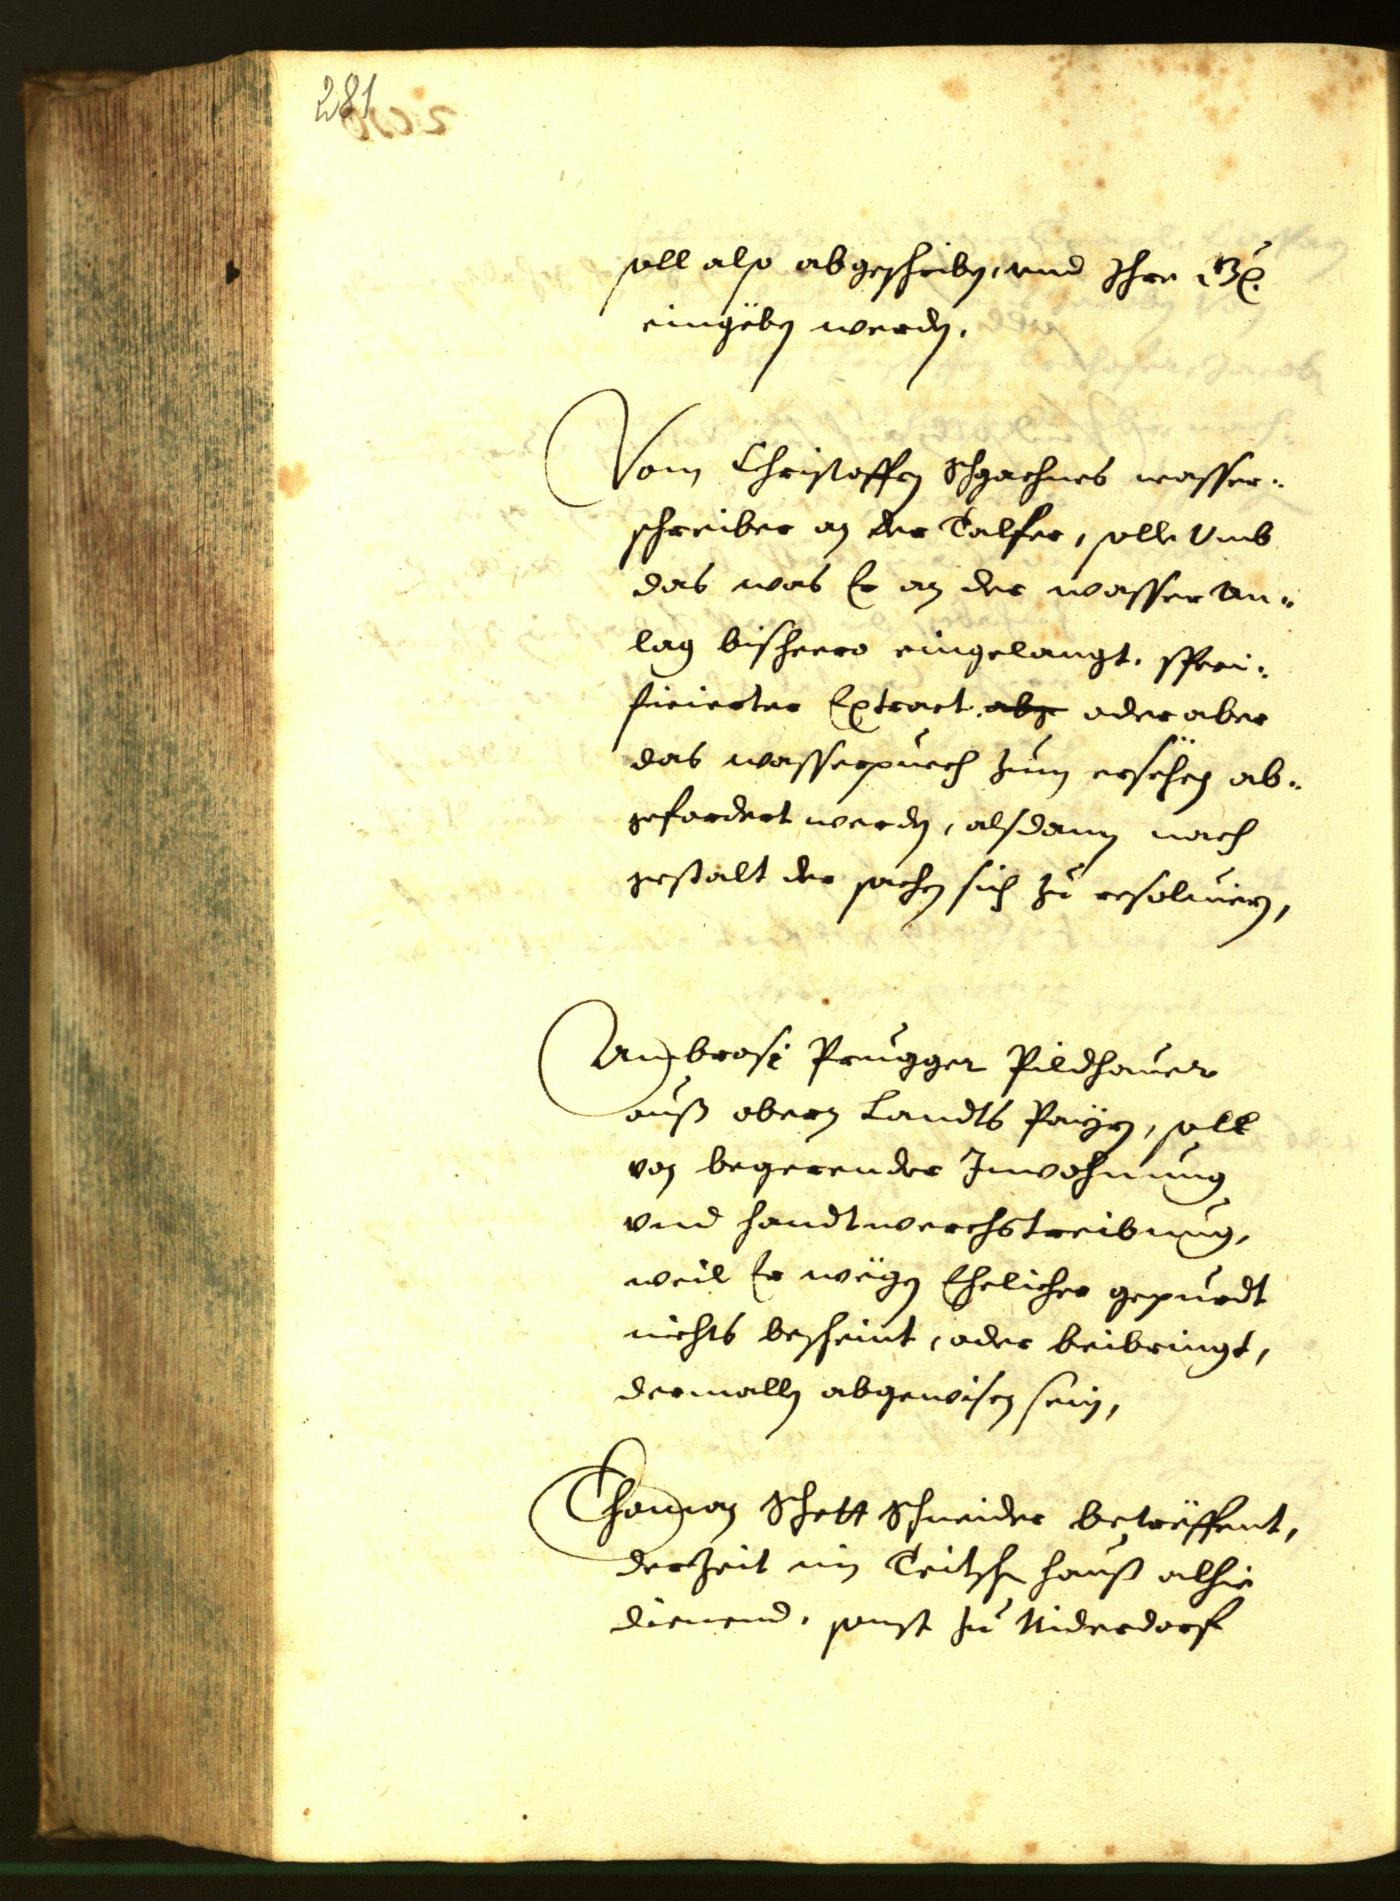 281
soll also abgeschriben, vnd Ihre
eingëben werden.
Vom Christoffen Schgachnes wasser-
schreiber an der Talfer, solle Vmb
das was Er an der wasser An-
lag bisheero eingelangt, speci-
ficierter Extract abge oder aber
das wasserpuech zum ersëhen ab-
gefordert werden, alsdann nach
gestalt der sachen sich zu resolvieren,
Ambrosi Prugger Pildhauer
auß obern Landts Payrn, soll
von begerender Inwohnung
vnd handtwerchstreibung,
weil Er wëgen Ehelicher gepurdt
nichts bescheint, oder beibringt,
dermallen abgewisen sein,
Thoman Schett Schneider betrëffent,
der Zeit im Teitschn hauß alhie
dienend, sonst zu Niderdorf